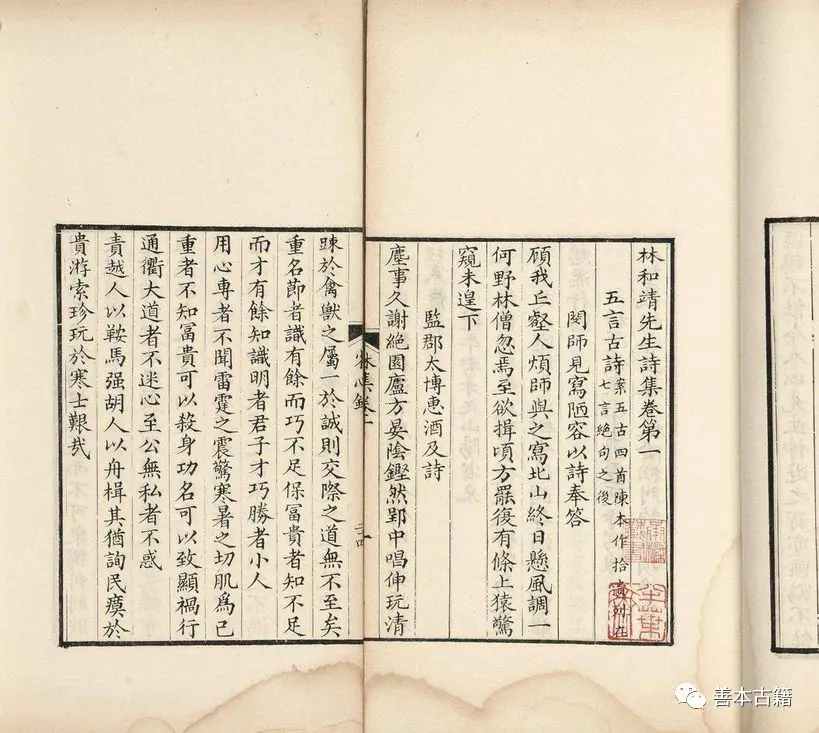 林和靖先生詩集卷第一
五言古詩案五古四首陳本作拾遺附在七言絶句之後
関師見寫陋容以詩奉答
顧我丘壑人煩師與之寫北山終日懸風調一
何野林僧忽焉至欲揖頃方罷復有條上猿驚
窺未遑下
監郡太博惠酒及詩
塵事久謝絶園廬方晏陰鏗然郢中唱伸玩清
踈於禽獸之屬一於誠則交際之道無不至矣
重名節者識有餘而巧不足保冨貴者知不足
而才有餘知識明者君子才巧勝者小人
用心専者不聞雷霆之震驚寒暑之切肌爲己
重者不知冨貴可以殺身功名可以致顯禍行
通衢大道者不迷心至公無私者不惑
責越人以鞍馬强胡人以舟楫其猶詢民瘼於
貴游索珍玩於寒士艱㦲
善本古籍